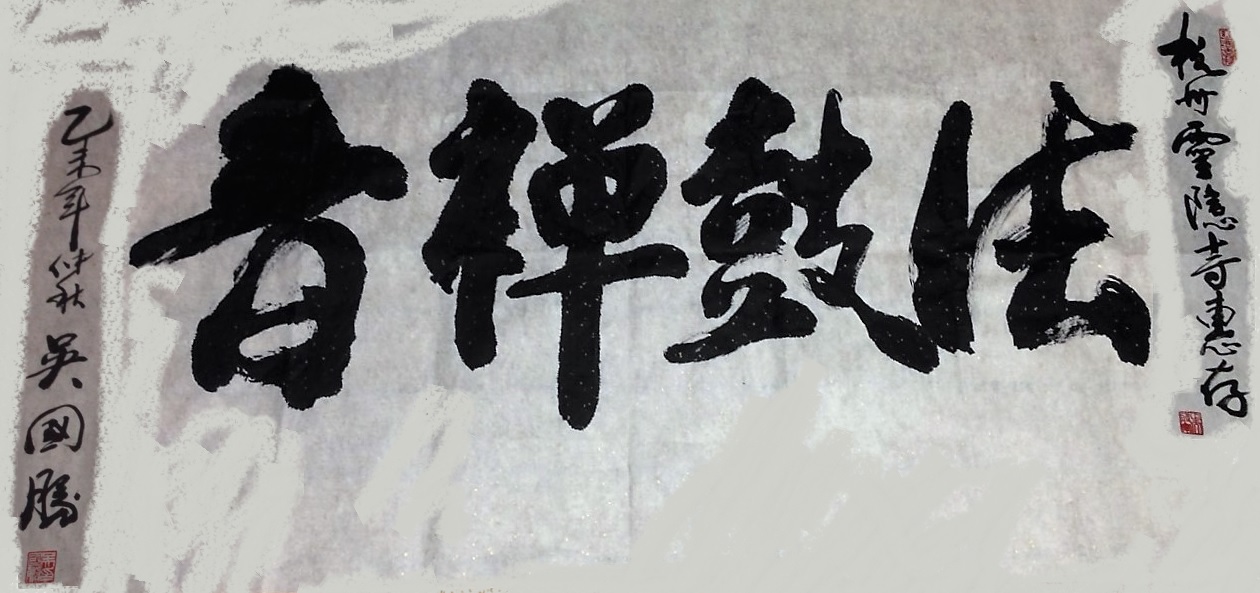 杭州靈隱寺惠存
法鼓禪音
乙未年仲秋
吳國勝